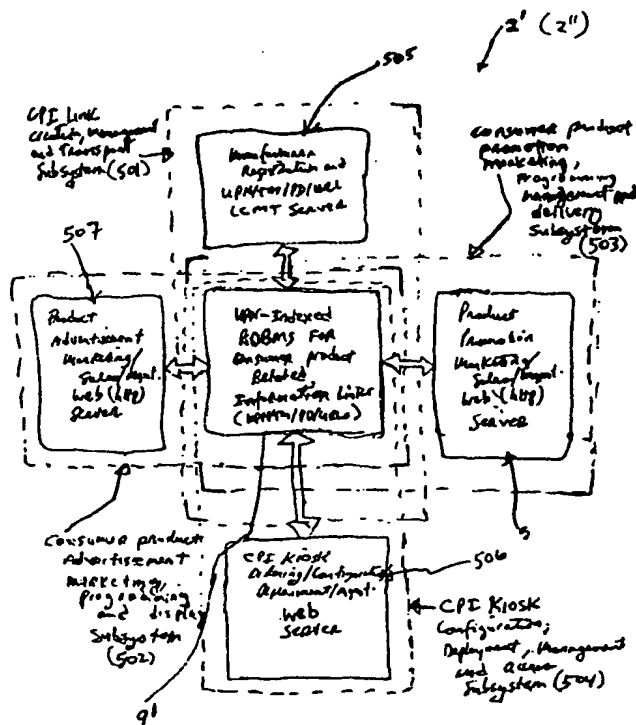 2' (2'')
505
CPI Link
Creation, Management
and Transport
Subsystem (501)
Manufacturer
Registration and
UPN/TM/PD/URL
LCMT Server
Consumer product
promotion
marketing,
programming
management and
delivery
Subsystem
(503)
507
Product
Advertisement
Marketing
Sales/Mgmt.
Web (http)
Server
UPN-Indexed
RDBMS FOR
Consumer product
Related
Information Links
(UPN/TM/PD/URLs)
Product
Promotion
Marketing
Sales/Mgmt.
Web (http)
Server
Consumer product
Advertisement
marketing,
programming
and display
Subsystem
(502)
9'
CPI Kiosk
Ordering/Configuration
Deployment/Mgmt.
Web
Server
506
CPI Kiosk
Configuration,
Deployment, Management
and Access
Subsystem (504)